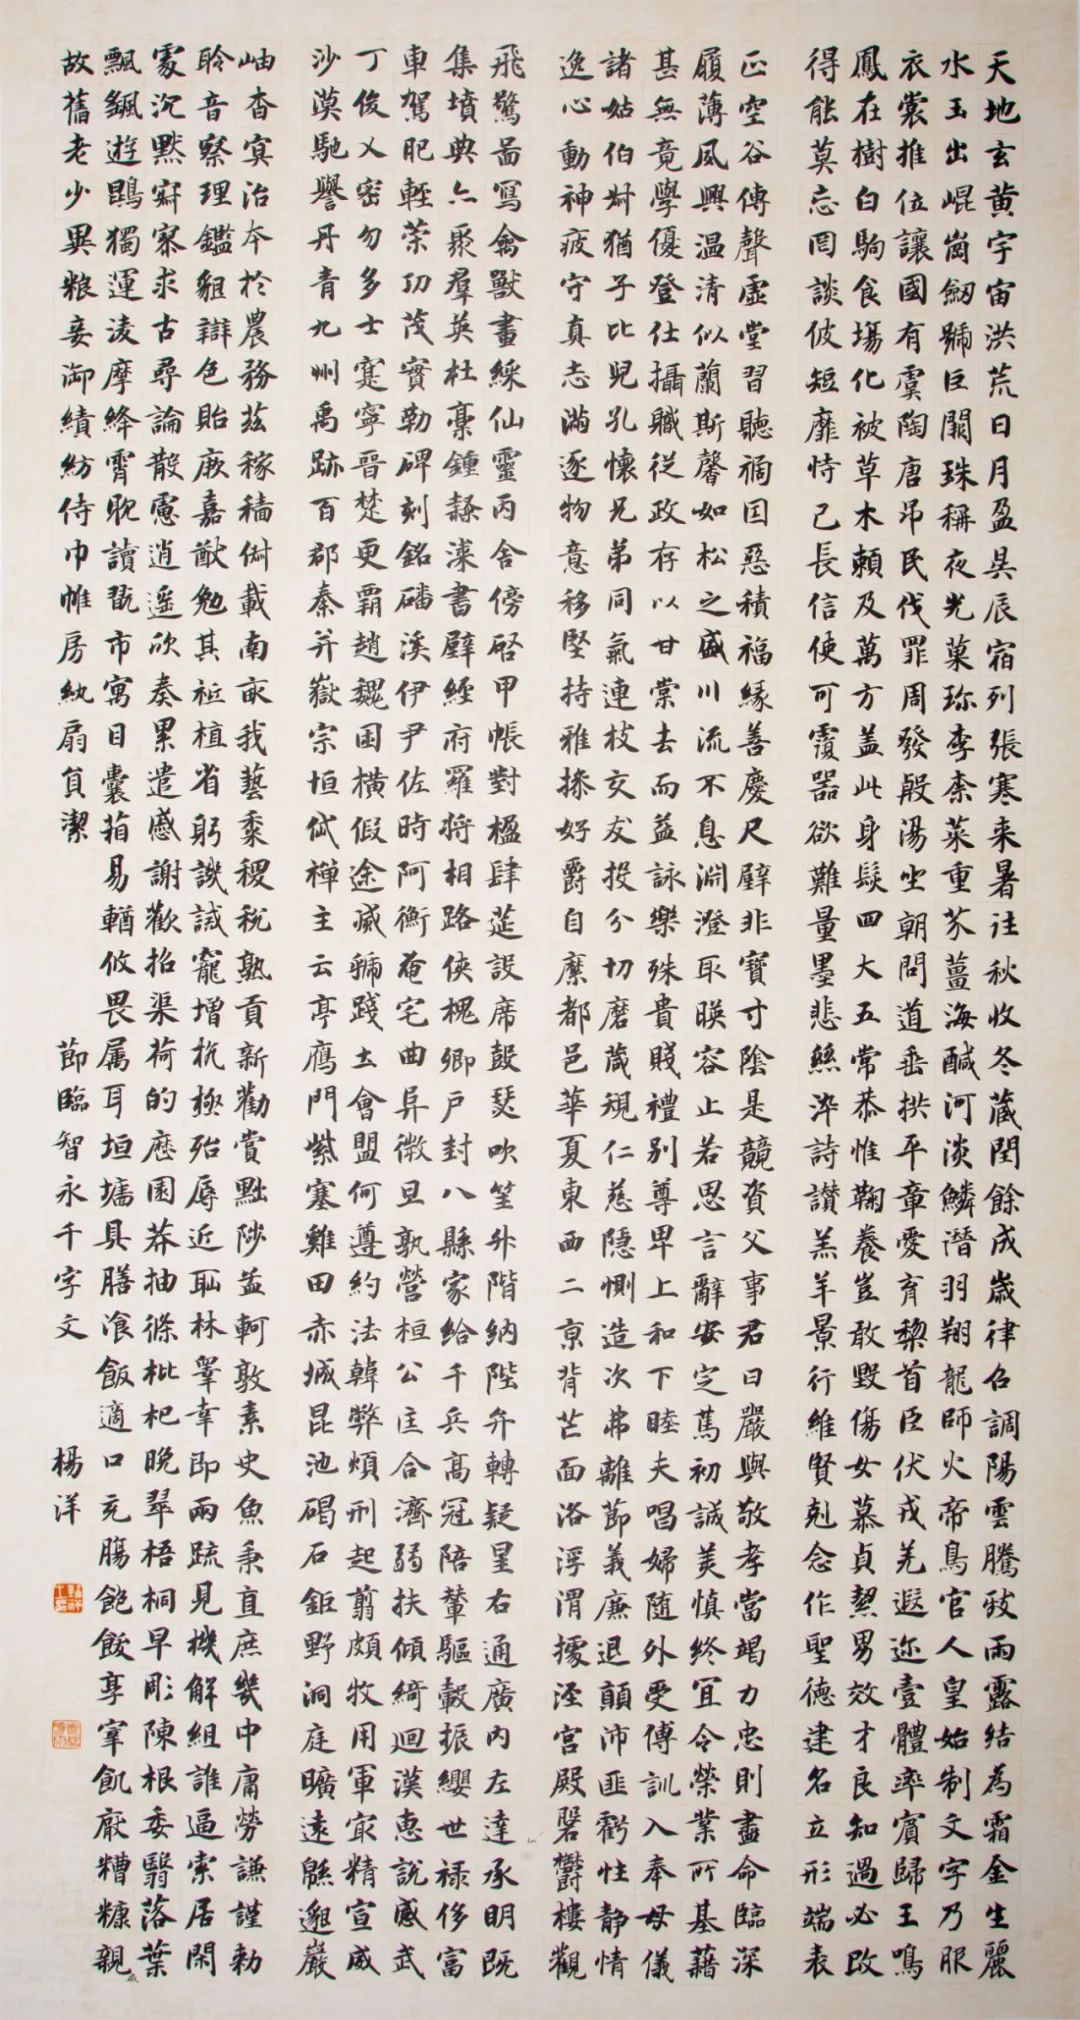 天地玄黃宇宙洪荒日月盈昃辰宿列張寒来暑往秋收冬蔵閏餘成歲律召調陽雲騰致雨露結為霜金生麗
水玉出崐崗劒號巨闕珠稱夜光菓珍李柰菜重芥薑海醎河淡鱗潛羽翔龍師火帝鳥官人皇始制文字乃服
衣裳推位讓國有虞陶唐弔民伐罪周發殷湯坐朝問道垂拱平章愛育黎首臣伏戎羌遐迩壹體率賓歸王鳴
鳳在樹白駒食場化被草木賴及萬方盖此身髮四大五常恭惟鞠養豈敢毀傷女慕貞絜男效才良知過必改
得能莫忘罔談彼短靡恃己長信使可覆器欲難量墨悲絲染詩讃羔羊景行維賢剋念作聖德建名立形端表
正空谷傳聲虛堂習聽禍因惡積福緣善慶尺璧非寶寸陰是競資父事君曰嚴與敬孝當竭力忠則盡命臨深
履薄夙興温清似蘭斯馨如松之盛川流不息淵澄取暎容止若思言辭安定篤初誠美慎終宜令榮業所基藉
甚無竟學優登仕攝職従政存以甘棠去而益詠樂殊貴賤禮別尊卑上和下睦夫唱婦随外受傅訓入奉母儀
諸姑伯叔猶子比兒孔懷兄弟同氣連枝交友投分切磨箴規仁慈隱惻造次弗離節義廉退顛沛匪虧性静情
逸心動神疲守真志滿逐物意移堅持雅操好爵自縻都邑華夏東西二京背芒面洛浮渭據涇宮殿磐欝樓觀
飛驚啚寫禽獸畫綵仙靈丙舍傍啓甲帳對楹肆莚設席鼓瑟吹笙升階納陛弁轉疑星右通廣內左達承明既
集墳典亦聚羣英杜稾鍾隸漆書壁經府羅將相路俠槐卿戶封八縣家給千兵高冠陪輦驅轂振纓世禄侈富
車駕肥輕策功茂實勒碑刻銘磻溪伊尹佐時阿衡奄宅曲阜微旦孰營桓公匡合濟弱扶傾綺迴漢惠說感武
丁俊乂密勿多士寔寧晉楚更霸趙魏困橫假途滅虢踐土會盟何遵約法韓弊煩刑起翦頗牧用軍最精宣威
沙漠馳譽丹青九州禹跡百郡秦并嶽宗恒岱禅主云亭鴈門紫塞雞田赤城昆池碣石鉅野洞庭曠遠緜邈巖
岫杳冥治本於農務茲稼穡俶載南畝我藝黍稷稅熟貢新勸賞黜陟孟軻敦素史魚秉直庶幾中庸勞謙謹勑
聆音察理鑑貌辯色貽厥嘉猷勉其祗植省躬譏誡寵增抗極殆辱近恥林睪幸即兩疏見機解組誰逼索居閑
處沉默寂寥求古尋論散慮逍遥欣奏累遣慼謝歡招渠荷的歷園莽抽條枇杷晚翠梧桐早彫陳根委翳落葉
飄颻遊鵾獨運淩摩絳霄耽讀翫市寓目囊葙易輶攸畏属耳垣墻具膳飡飯適口充腸飽飫享宰飢厭糟糠親
故舊老少異粮妾御績紡侍巾帷房紈扇員潔 節臨智永千字文 楊洋